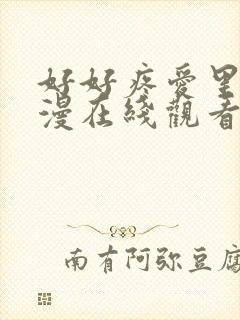 好好疼愛里
漫在綫觀看
南有阿弥豆腐